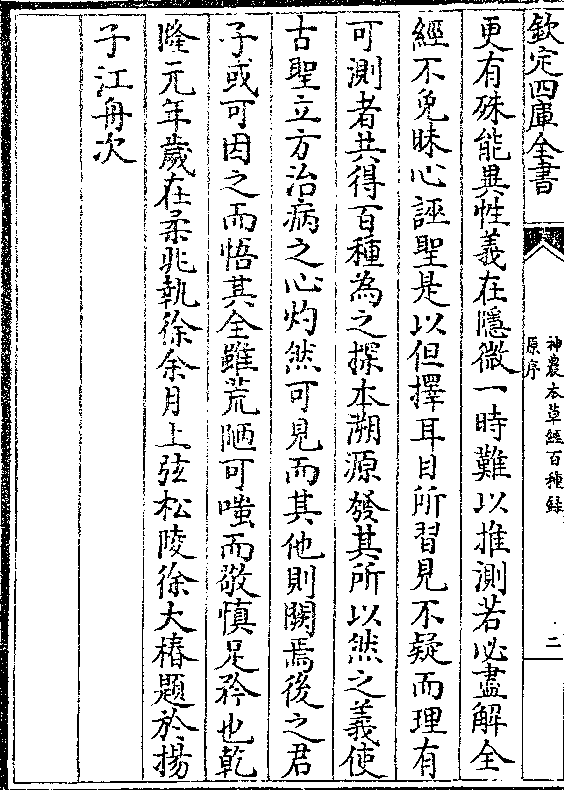 欽定四庫全書
神農本草經百種錄
原序
二
更有殊能異性義在隱微一時難以推測若必盡解全
經不免昧心誣聖是以但擇耳目所習見不疑而理有
可測者共得百種為之探本溯源發其所以然之義使
古聖立方治病之心灼然可見而其他則闕焉後之君
子或可因之而悟其全雖荒陋可嗤而敬慎足矜也乾
隆元年歲在柔兆執徐余月上弦松陵徐大椿題於揚
子江舟次